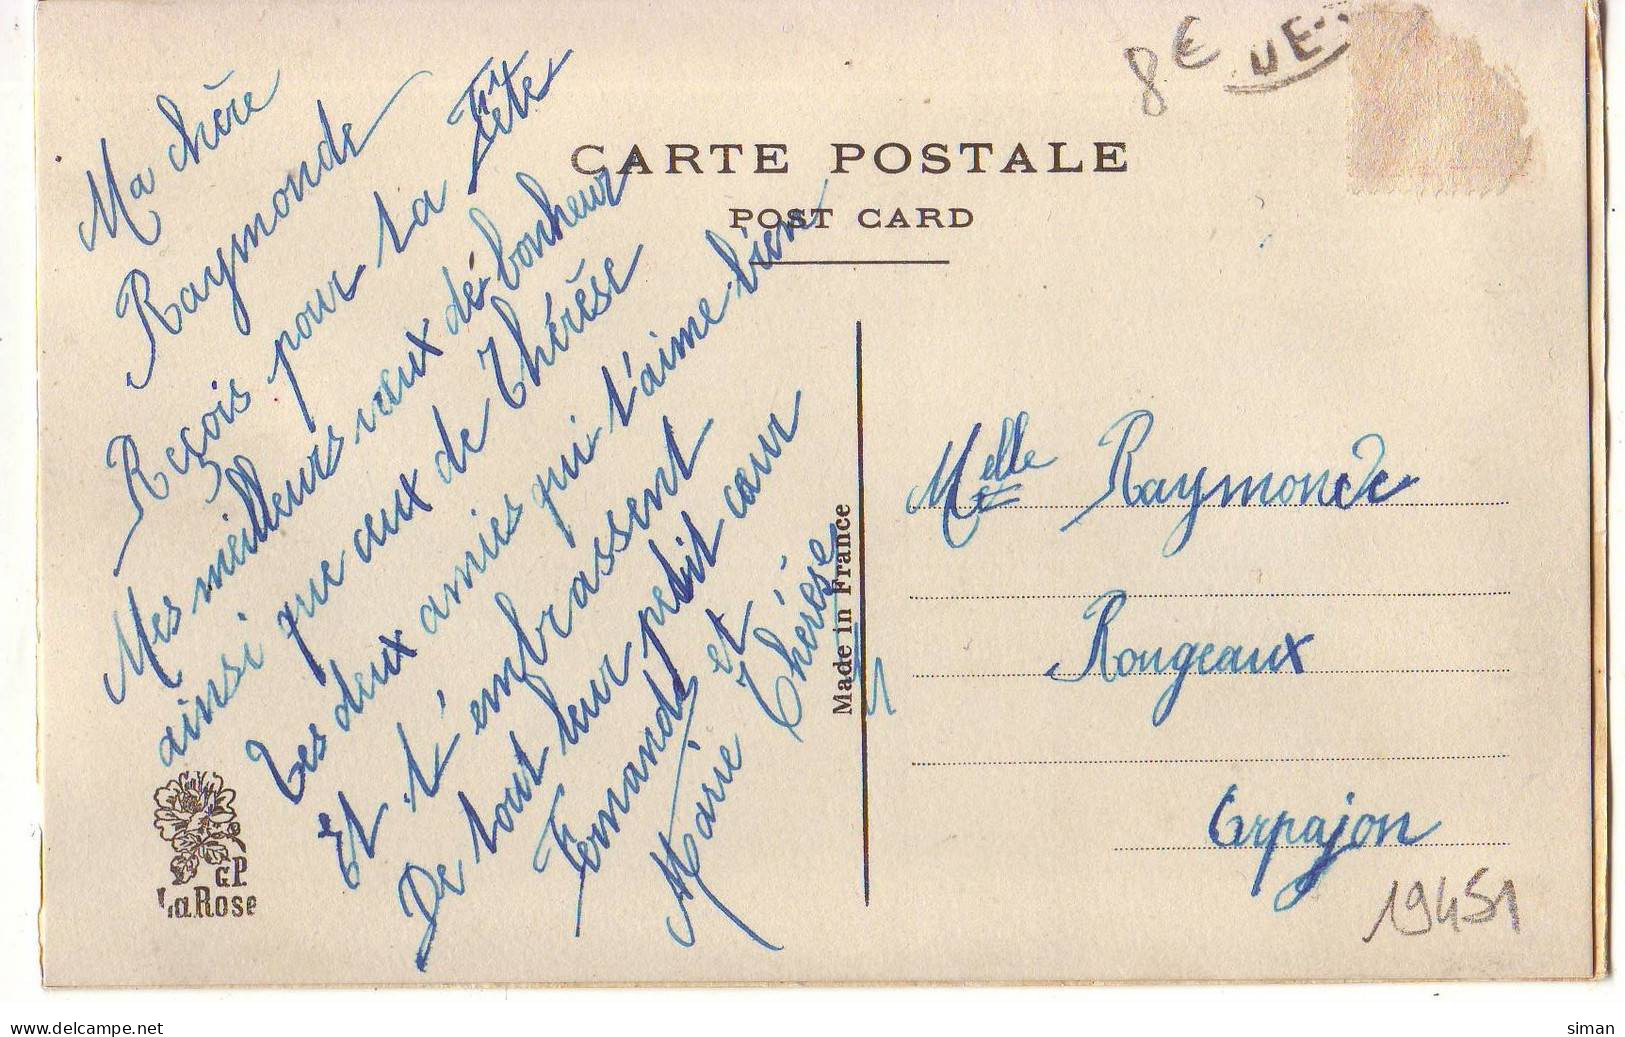 Ma chère
Raymonde
Reçois pour ta Fête
Mes meilleurs vœux de bonheur
ainsi que ceux de Thérèse
tes deux amies qui t'aime bien
Et t'embrassent
De tout leur petit cœur
Fernande et
Marie Thérèse
CARTE POSTALE
POST CARD
8€
UE
Made in France
Melle Raymonde
Rougeaux
Arpajon
19451
G.P.
La Rose
www.delcampe.net
siman